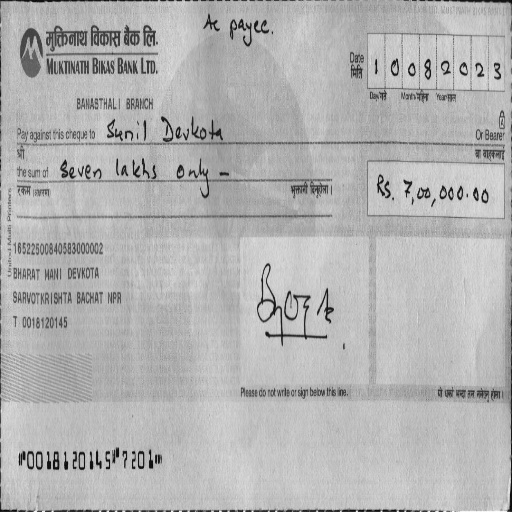 Ac payee.
मुक्तिनाथ विकास बैंक लि.
MUKTINATH BIKAS BANK LTD.
Date
मिति
1 0 0 8 2 0 2 3
Day/गते Month/महिना Year/साल
BANASTHALI BRANCH
Pay against this cheque to Sunil Devkota
Or Bearer
श्री
वा वाहकलाई
the sum of Seven lakhs only -
रकम (अक्षरुपी)
Rs. 7,00,000.00
United Multi Printers
16522500840583000002
BHARAT MANI DEVKOTA
SARVOTKRISHTA BACHAT NPR
T 0018120145
Please do not write or sign below this line.
⑈0018120145⑈7201⑈